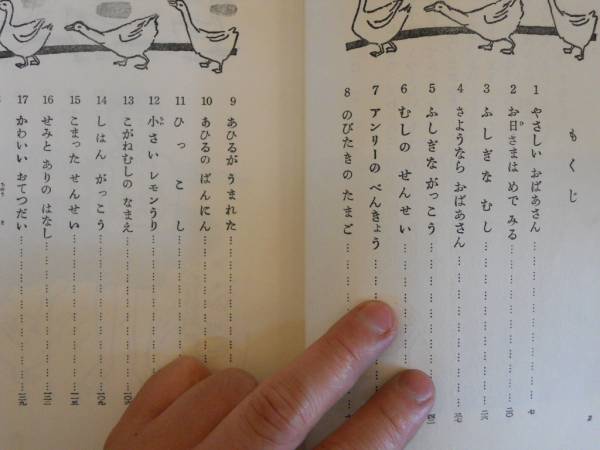 もくじ
1 やさしい おばあさん 七
2 お日さまは めで みる 一〇
3 ふしぎな むし
4 さようなら おばあさん
5 ふしぎな がっこう
6 むしの せんせい
7 アンリーの べんきょう
8 のびたきの たまご
9 あひるが うまれた
10 あひるの ばんにん
11 ひっこし
12 小さい レモンうり
13 こがねむしの なまえ
14 しはん がっこう
15 こまった せんせい
16 せみと ありの はなし
17 かわいい おてつだい
2